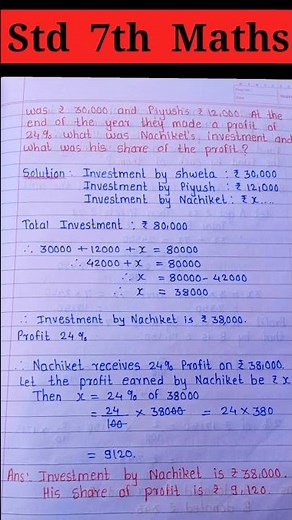 Std 7th Maths
was ₹ 30,000 and Piyush's ₹ 12,000 At the
end of the year they made a profit of
24% what was Nachiket's investment and
what was his share of the profit?
Solution: Investment by shweta : ₹ 30,000
Investment by Piyush : ₹ 12,000
Investment by Nachiket: ₹ x....
Total Investment : ₹ 80,000
∴ 30000 + 12000 + x = 80000
∴ 42000 + x = 80000
∴ x = 80000 - 42000
∴ x = 38000
∴ Investment by Nachiket is ₹ 38,000.
Profit 24%
∴ Nachiket receives 24% Profit on ₹ 38,000.
Let the profit earned by Nachiket be ₹ x
Then x = 24% of 38000
= 24/100 × 38000 = 24 × 380
= 9120.
Ans: Investment by Nachiket is ₹ 38,000.
His share of profit is ₹ 9,120.